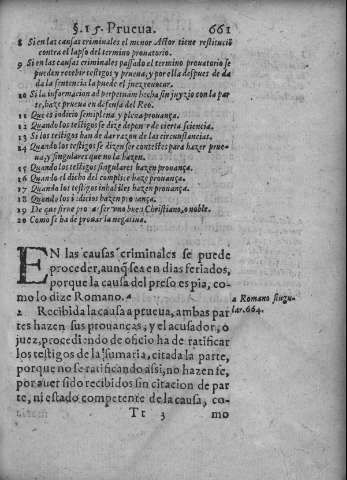 §.15. Prueua. 661
8 Si en las causas criminales el menor Actor tiene restituciõ
contra el lapso del termino prouatorio.
9 Si en las causas criminales passado el termino prouatorio se
pueden recebir testigos y prueua, y por ella despues de da
da la sentencia la puede el juez reuocar.
10 Si la informacion ad perpetuam hecha sin juyzio con la par
te, haze prueua en defensa del Reo.
11 Que es indicio semiplena y plena prouança.
12 Quando los testigos se dize deponer de cierta sciencia.
13 Si los testigos han de dar razon de las circunstancias.
14 Quando los testigos se dizen ser contestes para hazer prue-
ua, y singulares que no la hazen.
15 Quando los testigos singulares hazen prouança.
16 Quando el dicho del complice haze prouança.
17 Quando los testigos inhabiles hazen prouança.
18 Quando los indicios hazen prouança.
19 De que sirue prouar ser uno buen Christiano, o noble.
20 Como se ha de prouar la negatiua.
EN las causas criminales se puede
proceder, aunq̃ sea en dias feriados,
porque la causa del preso es pia, co-
mo lo dize Romano. a
a Romano singu-
lar. 664.
2 Recibida la causa a prueua, ambas par
tes hazen sus prouanças, y el acusador, o
juez, procediendo de oficio ha de ratificar
los testigos de la sumaria, citada la parte,
porque no se ratificando assi, no hazen fe,
por auer sido recibidos sin citacion de par
te, ni estado competente de la causa, co-
Tt 3 mo